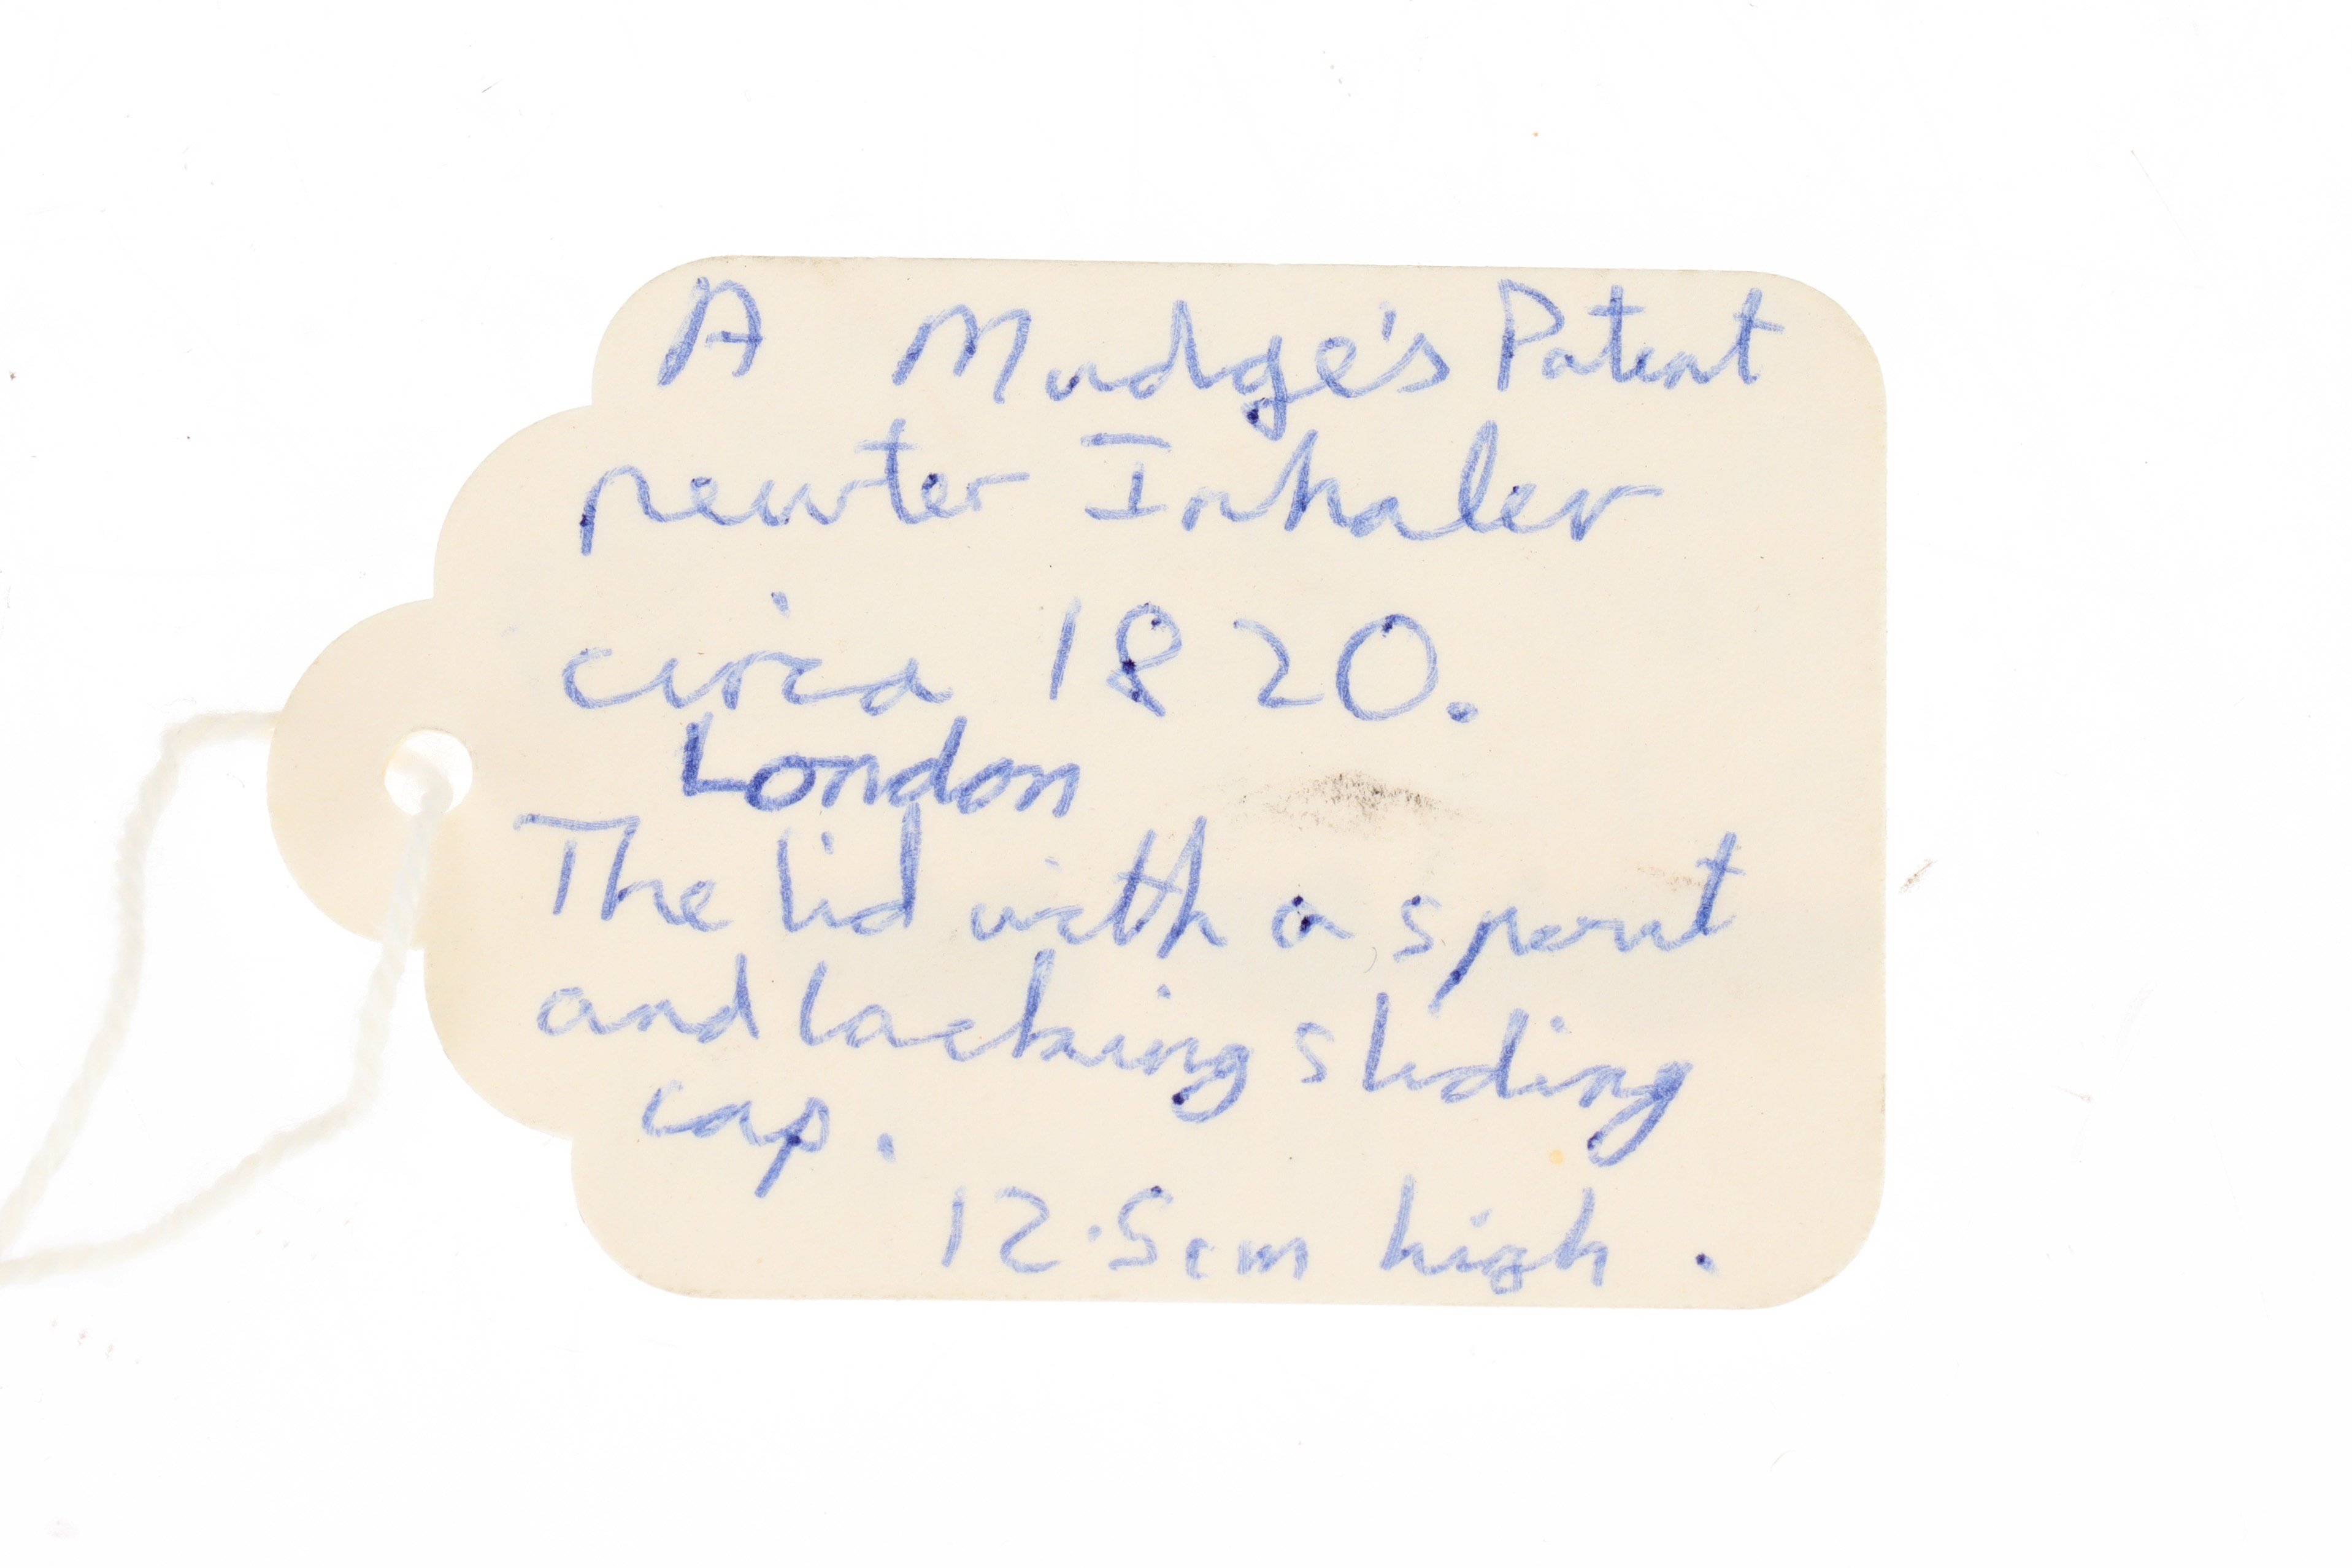 A Mudge's Patent
pewter Inhaler
circa 1820.
London
The lid with a spout
and lacking sliding
cap.
12.5cm high.